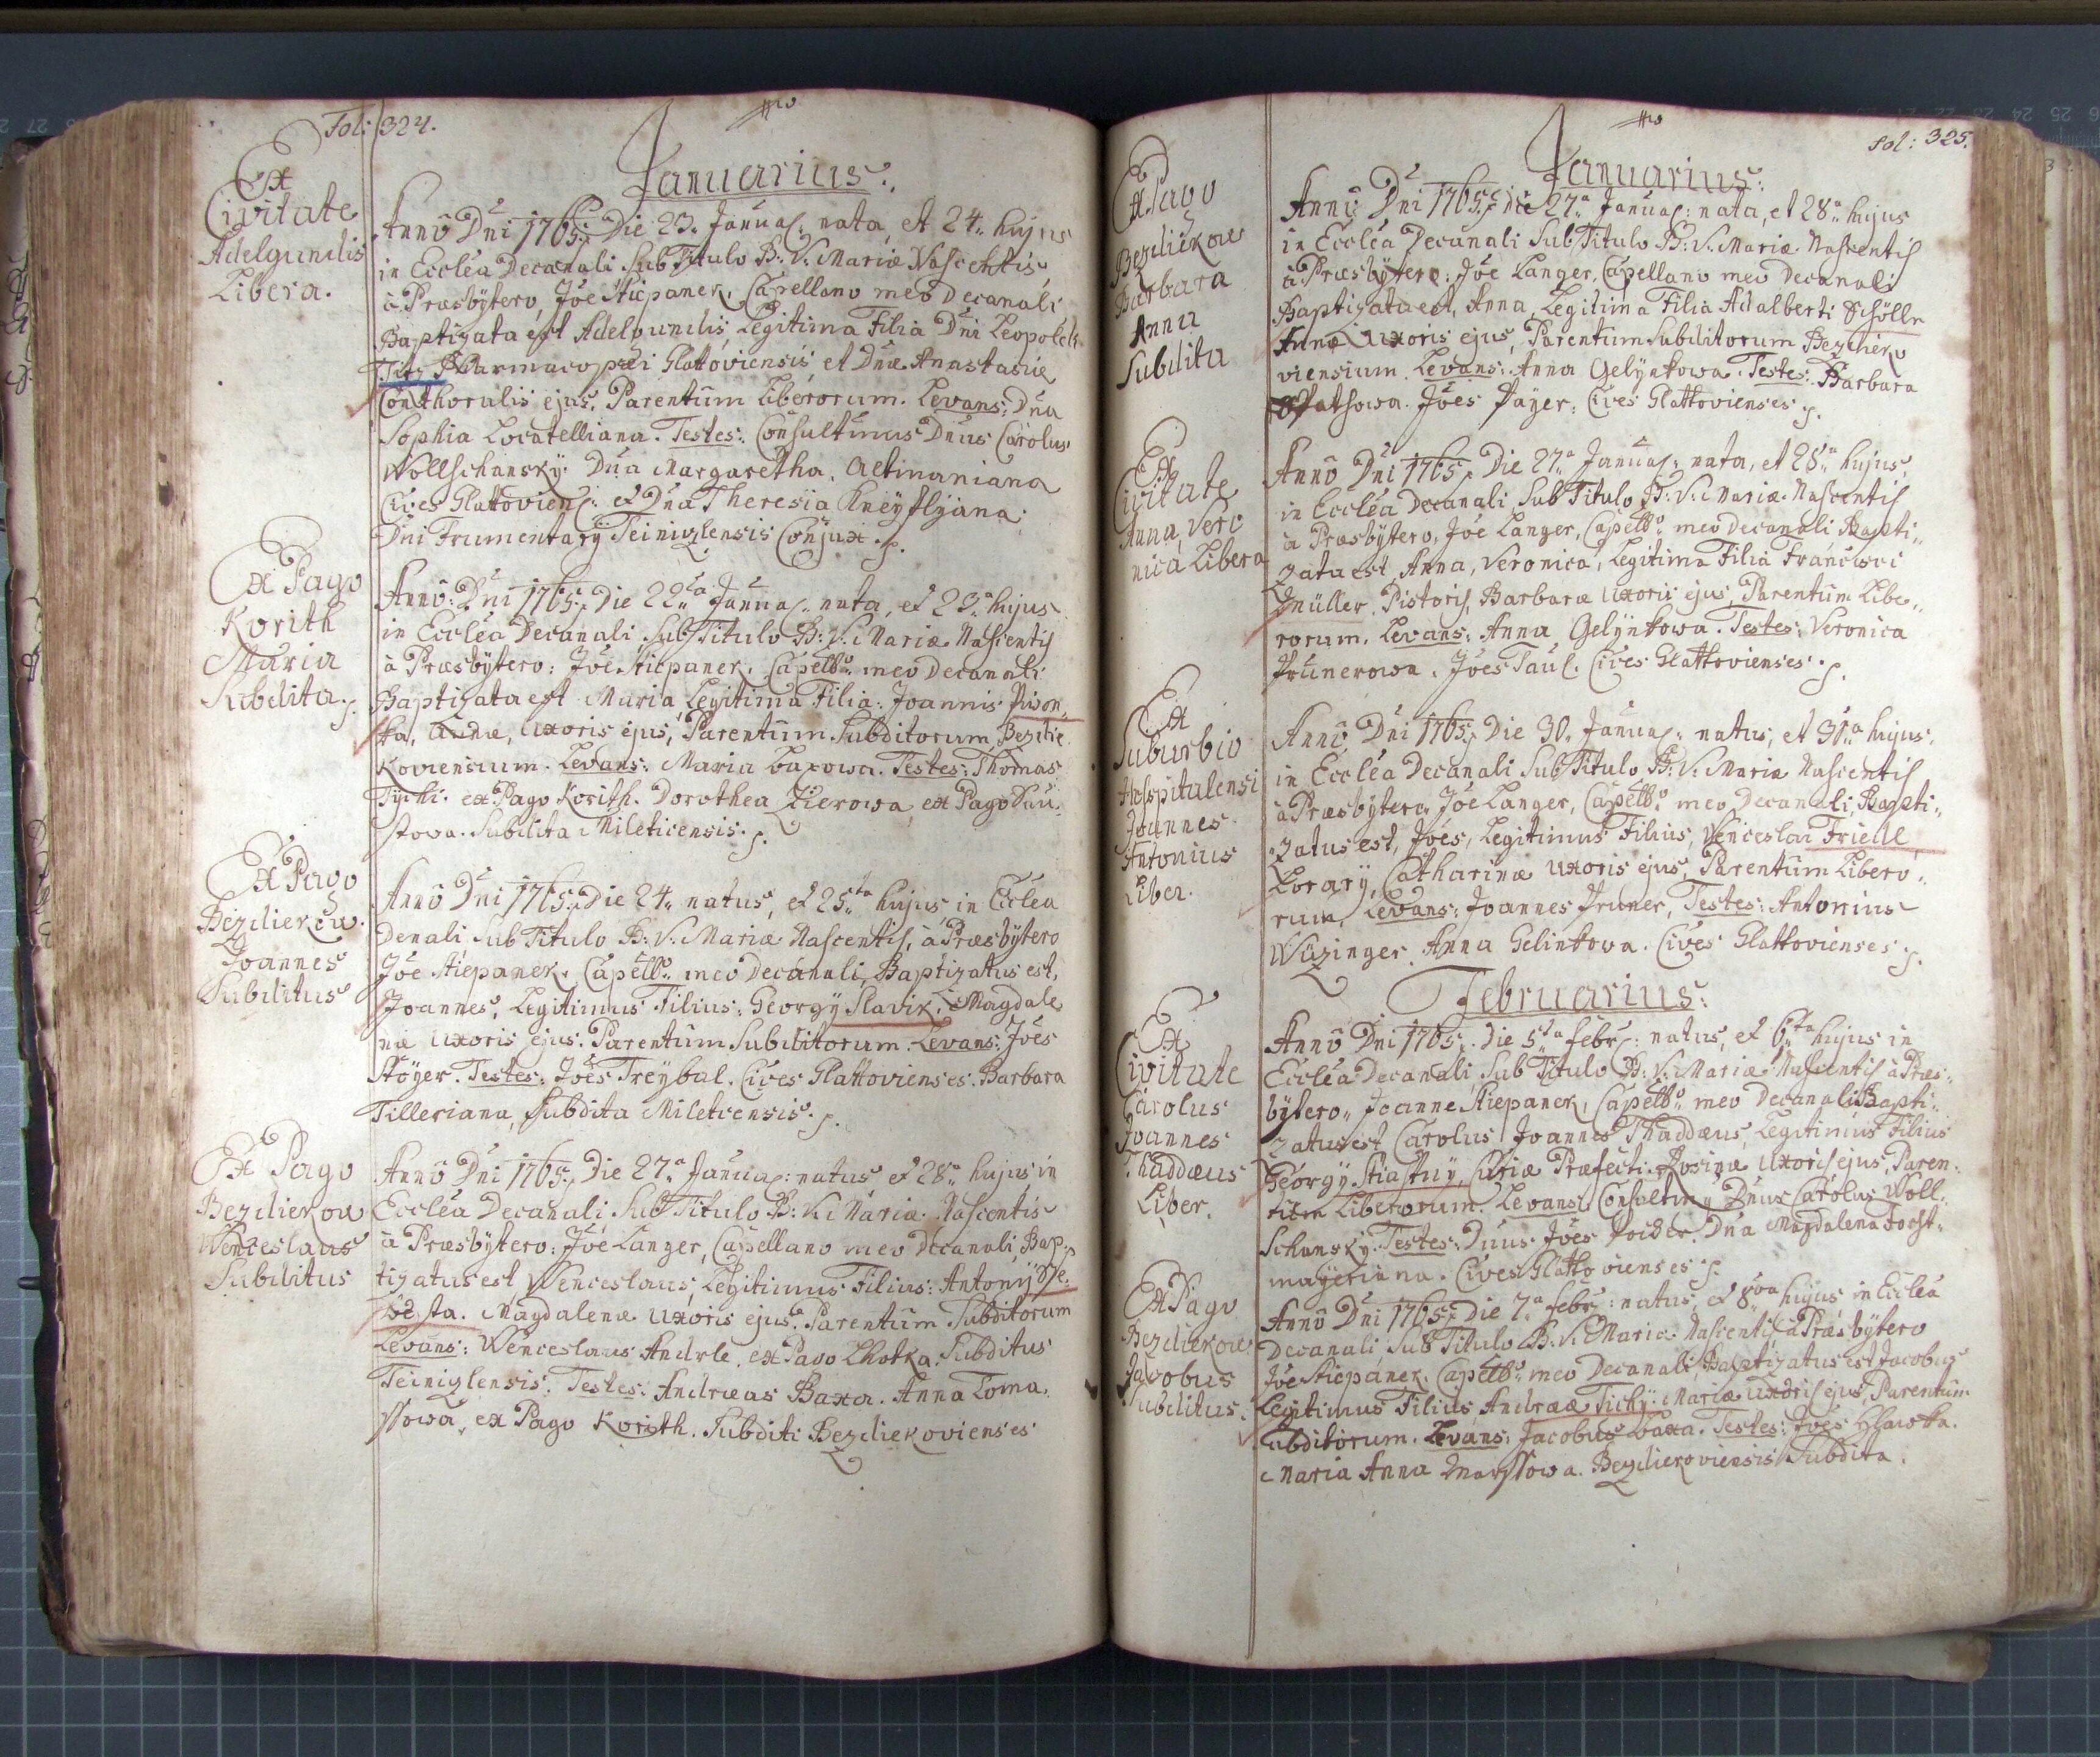 Fol: 324.
Januarius:
Ex
Civitate
Adelgundis
Libera.
Anno Dni 1765. Die 23. Januar: nata, et 24. hujus
in Ecclea Decanali Sub Titulo B: V: Mariæ Nascentis
à Præsbÿtero Joe Stiepanek, Capellano meo Decanali
Baptizata est Adelgundis, Legitima Filia Dni Leopoldi
Titz Pharmacopæi Glattoviensis, et Dnæ Anastasiæ
Conthoralis ejus, Parentum Liberorum. Levans: Dna
Sophia Locatelliana. Testes: Consultimus Dnus Carolus
Wollschanskÿ. Dna Margaretha, Altmaniana
Cives Glattovien: et Dna Theresia Kneÿflÿana
Dni Frumentarÿ Teinizlensis Conjux.
Ex Pago
Korith
Maria
Subdita.
Anno Dni 1765. Die 22da Januar: nata, et 23a hujus
in Ecclea Decanali Sub Titulo B: V: Mariæ Nascentis
à Præsbÿtero: Joe Stiepanek, Capellō meo Decanali
Baptizata est Maria Legitima Filia: Joannis Piwon,,
ka, Annæ, Uxoris ejus, Parentum Subditorum Bezdie
koviensium. Levans: Maria Baxowa. Testes: Thomas
Tÿchi. ex Pago Korith. Dorothea ex Pago
stowa. Subdita Mileticensis.
Ex Pago
Bezdiekow.
Joannes
Subditus
Anno Dni 1765. Die 24. natus, et 25ta hujus, in Ecclea
Denali Sub Titulo B: V: Mariæ Nascentis, à Præsbÿtero
Joe Stiepanek. Capellō meo Decanali, Baptizatus est,
Joannes, Legitimus Filius: Georgÿ Slavik. Magdale
næ Uxoris ejus. Parentum Subditorum. Levans: Joes
Stöger. Testes: Joes Treÿbal. Cives Glattovienses. Barbara
Tilleriana, Subdita Miletcensis.
Ex Pago
Bezdiekow
Wenceslaus
Subditus
Anno Dni 1765. Die 27a Januar: natus et 28a hujus in
Ecclea Decanali Sub Titulo B: V: Mariæ Nascentis
à Præsbÿtero: Joe Langer, Capellano meo Decanali, Bap,,
tizatus est, Wenceslaus, Legitimus Filius: Antonÿ
Magdalenæ Uxoris ejus. Parentum Subditorum
Levans: Wenceslaus Andrle, ex Pago Lhotka. Subditus
Teinizlensis. Testes: Andreas Baxa. Anna Toma,,
ssowa, ex Pago Korith. Subditi Bezdiekovienses
fol: 325.
Januarius:
Ex Pago
Bezdiekow
Barbara
Anna
Subdita
Anno Dni 1765. Die 27a Januar: nata, et 28a hujus
in Ecclea Decanali Sub Titulo B: V: Mariæ Nascentis
à Præsbÿtero: Joe Langer, Capellano meo Decanali
Baptizata est, Anna, Legitima Filia Adalberti Schölle
Annæ Uxoris ejus, Parentum Subditorum Bezdieko
viensium. Levans: Anna Gelÿnkowa. Testes: Barbara
Joes Paÿer: Cives Glattovienses.
Ex
Civitate
Anna, Vero
nica Libera
Anno Dni 1765. Die 27a Januar: nata, et 28a hujus
in Ecclea Decanali, Sub Titulo B: V: Mariæ Nascentis
à Præsbÿtero, Joe Langer, Capellō meo Decanali Bapti,,
zata est, Anna, Veronica, Legitima Filia Francisci
Müller. Pistoris, Barbaræ Uxoris ejus, Parentum Libe,,
rorum. Levans: Anna Gelÿnkowa. Testes: Veronica
Prunerowa. Joes Paul. Cives Glattovienses.
Ex
Suburbio
Hospitalensi
Joannes
Antonius
Liber.
Anno Dni 1765. Die 30. Januar: natus, et 31a hujus,
in Ecclea Decanali Sub Titulo B: V: Mariæ Nascentis
à Præsbÿtero, Joe Langer, Capellō meo Decanali, Bapti,,
zatus est, Joes, Legitimus Filius, Wenceslai Friedl
Lorarÿ, Catharinæ Uxoris ejus, Parentum Libero,,
rum, Levans: Joannes Pruner, Testes: Antonius
Wüzinger. Anna Gelinkova. Cives Glattovienses.
Februarius:
Ex
Civitate
Carolus
Joannes
Thaddæus
Liber.
Anno Dni 1765. Die 5ta febr: natus, et 6ta hujus in
Ecclea Decanali Sub Titulo B: V: Mariæ Nascentis à Præs,,
bÿtero,, Joanne Stiepanek, Capellō meo Decanali Bapti,,
zatus est Carolus Joannes Thaddæus, Legitimus Filius
Georgÿ Stiastny, Curiæ Præfecti. Rosinæ Uxoris ejus, Paren,,
tum Liberorum. Levans: Consultmg Dnus Carolus Woll,,
schanskÿ. Testes: Dnus Joes Dna Magdalena Forst,,
maÿeriana. Cives Glattovienses.
Ex Pago
Bezdiekow
Jacobus
Subditus.
Anno Dni 1765. Die 7a febr: natus, et 8va hujus in Ecclea
Decanali Sub Titulo B: V: Mariæ Nascentis à Præsbÿtero
Joe Stiepanek. Capellō meo Decanali, Baptizatus est Jacobus
Legitimus Filius Andreæ Tichÿ. Mariæ Uxoris ejus, Parentum
Subditorum. Levans: Jacobus Baxa. Testes: Joes Hlawka.
Maria Anna Marssowa. Bezdiekoviensis Subdita.